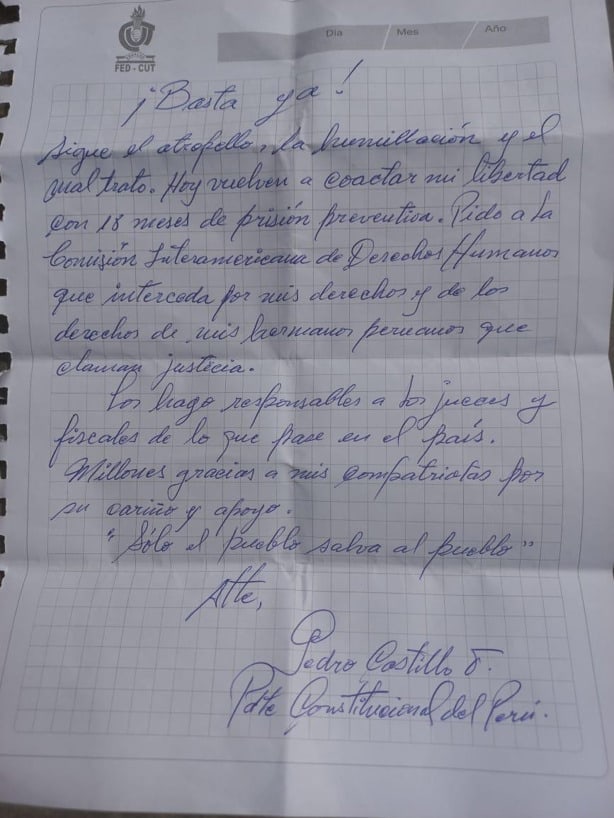 FED-CUT
Día / Mes / Año
¡Basta ya!
Sigue el atropello, la humillación y el
maltrato. Hoy vuelven a coactar mi libertad
con 18 meses de prisión preventiva. Pido a la
Comisión Interamericana de Derechos Humanos
que interceda por mis derechos y de los
derechos de mis hermanos peruanos que
claman justicia.
Los hago responsables a los jueces y
fiscales de lo que pase en el país.
Millones gracias a mis compatriotas por
su cariño y apoyo.
"Sólo el pueblo salva al pueblo"
Atte,
Pedro Castillo T.
Pdte Constitucional del Perú.